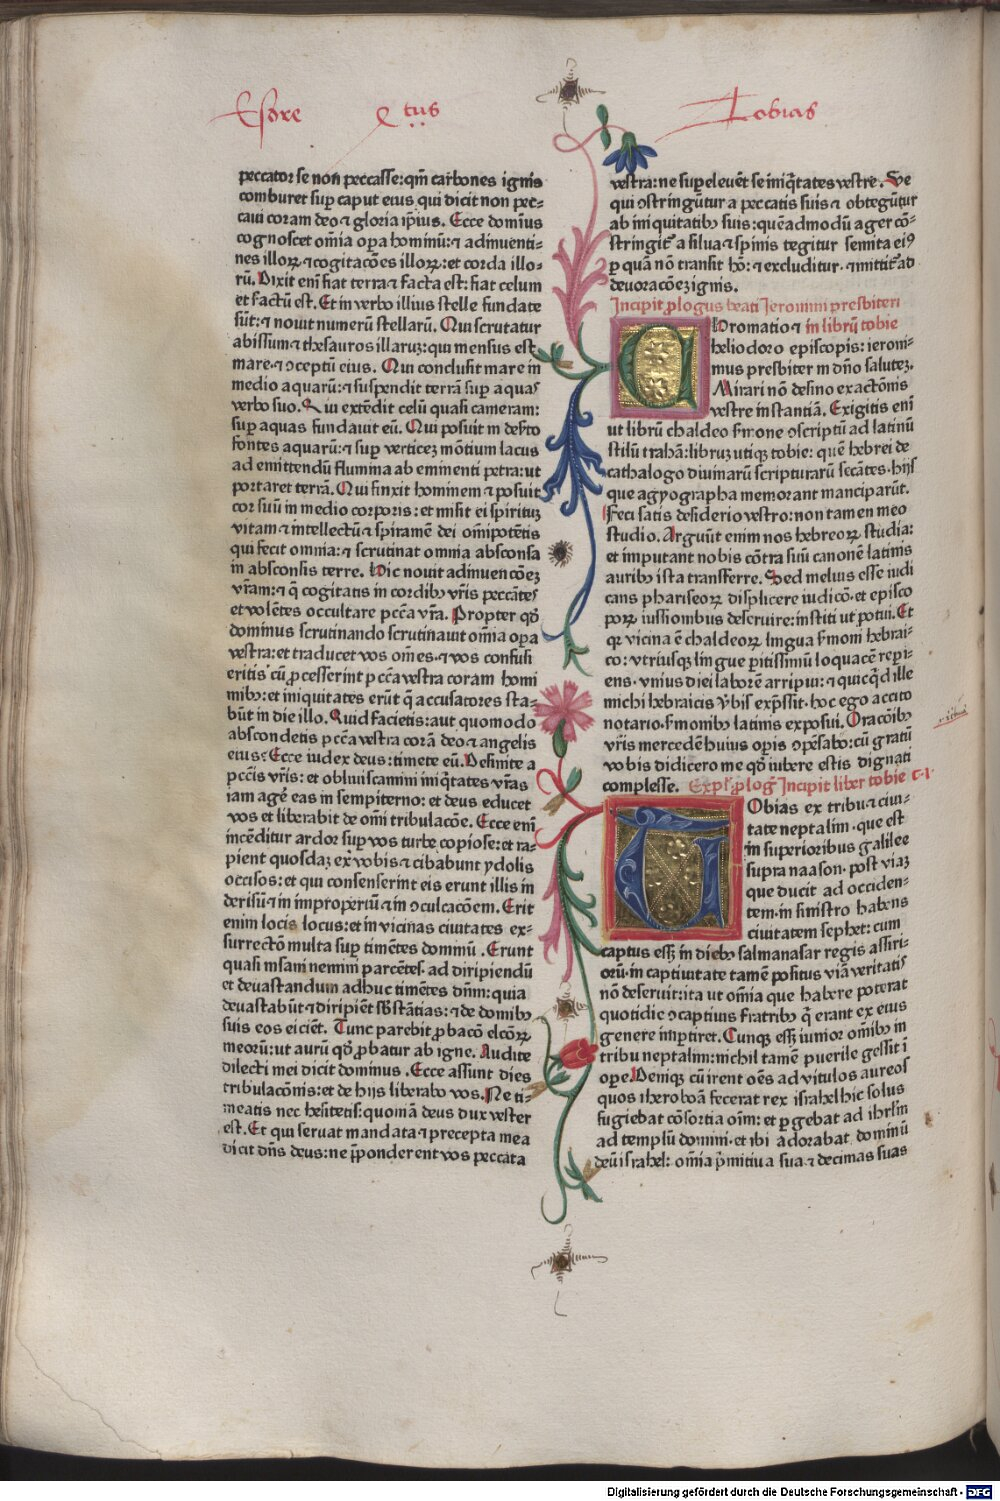 Esdre
Tobias
peccator se non peccasse: qm̄ carbones ignis
comburet suꝑ caput eius qui dicit non pec-
caui coram deo ⁊ gloria ip̄ius. Ecce domin̄us
cognoscet om̄ia oꝑa hominū: ⁊ adinuenti-
nes illoꝝ ⁊ cogitacōes illoꝝ: et corda illo-
rū. Dixit enī fiat terra ⁊ facta est: fiat celum
et factū est. Et in verbo illius stelle fundate
sūt: ⁊ nouit numerū stellarū. Qui scrutatur
abissum ⁊ thesauros illaruꝫ: qui mensus est
mare ⁊ ꝯceptū eius. Qui conclusit mare in
medio aquarū: ⁊ suspendit terrā suꝑ aquas
verbo suo. Qui extēdit celū quasi cameram:
suꝑ aquas fundauit eū. Qui posuit in deẜto
fontes aquarū: ⁊ suꝑ verticeꝫ mōtium lacus
ad emittendū flumina ab eminenti petra: ut
portaret terrā. Qui finxit hominem ⁊ posuit
cor suū in medio corporis: et misit ei spirituꝫ
vitam ⁊ intellectū ⁊ spiramē dei om̄ipotētis
qui fecit omnia: ⁊ scrutinat omnia absconsa
in absconsis terre. Hic nouit adinuencōeꝫ
vr̄am: ⁊ q̄ cogitatis in cordibꝰ vr̄is peccātes
et volētes occultare pcc̄a vr̄a. Propter qđ
dominus scrutinando scrutinauit om̄ia oꝑa
vestra: et traducet vos om̄es. ⁊ vos confusi
eritis cū ꝓcesserint pcc̄a vestra coram homi
nibꝰ: et iniquitates erūt q̄ accusatores sta-
būt in die illo. Quid facietis: aut quomodo
abscondetis pcc̄a vestra corā deo ⁊ angelis
eius? Ecce iudex deus: timete eū. Desinite a
pcc̄is vr̄is: et obliuiscamini iniq̄tates vr̄as
iam agē eas in sempiterno: et deus educet
vos et liberabit de om̄i tribulacōe. Ecce enī
incēditur ardor suꝑ vos turbe copiose: et ra-
pient quosdaꝫ ex vobis ⁊ cibabunt ydolis
occisos: et qui consenserint eis erunt illis in
derisū ⁊ in improperiū ⁊ in ꝯculcacōem. Erit
enim locis locus: et in vicinas ciuitates ex-
surrectō multa suꝑ timētes dominū. Erunt
quasi insani nemini parcētes. ad diripiendū
et deuastandum adhuc timētes dn̄m: quia
deuastabūt ⁊ diripiēt sb̄stātias: ⁊ de domibꝰ
suis eos eiciēt. Tunc parebit ꝓbacō elcōꝝ
meorū: ut aurū qđ ꝓbatur ab igne. Audite
dilecti mei dicit dominus. Ecce assunt dies
tribulacōnis: et de hijs liberabo vos. Ne ti-
meatis nec hesitetis: quoniā deus dux vester
est. Et qui seruat mandata ⁊ precepta mea
dicit dn̄s deus: ne p̄ponderent vos peccata
vestra: ne suꝑeleuēt se iniq̄tates vestre. Ve
qui ꝯstringūtur a peccatis suis ⁊ obtegūtur
ab iniquitatibꝰ suis: quēadmodū ager cō-
stringit̄ a silua ⁊ spinis tegitur semita eiꝰ
ꝑ quā nō transit hō: ⁊ excluditur. ⁊ mittit̄ ad
deuoracōeꝫ ignis.
Incipit ꝓlogus beati Jeronimi presbiteri
in librū tobie
Cromatio ⁊
heliodoro episcopis: ieroni-
mus presbiter in dn̄o saluteꝫ.
Mirari nō desino exactōnis
vestre instantiā. Exigitis enī
ut librū chaldeo ẜmone ꝯscriptū ad latinū
stilū trahā: libruꝫ utiqꝫ tobie: quē hebrei de
cathalogo diuinarū scripturarū secātes. hijs
que agyographa memorant manciparūt.
Feci satis desiderio vestro: non tamen meo
studio. Arguūt enim nos hebreoꝝ studia:
et imputant nobis cōtra suū canonē latinis
auribꝰ ista transferre. Sed melius esse iudi
cans phariseoꝝ displicere iudicō. et episco
poꝝ iussionibus deseruire: institi ut potui. Et
qꝛ vicina ē chaldeoꝝ lingua ẜmoni hebrai-
co: utriusqꝫ lingue ꝑitissimū loquacē reꝑi-
ens. vnius diei laborē arripui: ⁊ quicqđ ille
michi hebraicis v̓bis exp̄ssit. hoc ego accito
notario. ẜmonibꝰ latinis exposui. Oracōibꝰ
vr̄is mercedē huius oꝑis ꝯpēsabo: cū gratū
vobis didicero me qđ iubere estis dignati
complesse. Expl̓ ꝓlog̓ Incipit liber tobie c. i.
Tobias ex tribu ⁊ ciui-
tate neptalim. que est
in superioribus galilee
supra naason. post viaꝫ
que ducit ad occiden-
tem. in sinistro habens
ciuitatem sephet: cum
captus esꝫ in diebꝰ salmanasar regis assiri-
orū. in captiuitate tamē positus viā veritatis
nō deseruit: ita ut om̄ia que habere poterat
quotidie ꝯcaptiuis fratribꝰ q̄ erant ex eius
genere imꝑtiret. Cunqꝫ esꝫ iunior om̄ibꝰ in
tribu neptalim: nichil tamē puerile gessit ī
oꝑe. Deniqꝫ cū irent oēs ad vitulos aureos
quos iheroboā fecerat rex israhel hic solus
fugiebat cōsortia oīm: et ꝑgebat ad ihrl̄m
ad templū domini. et ibi adorabat dominū
deū israhel: om̄ia p̄mitiua sua ⁊ decimas suas
Digitalisierung gefördert durch die Deutsche Forschungsgemeinschaft - DFG